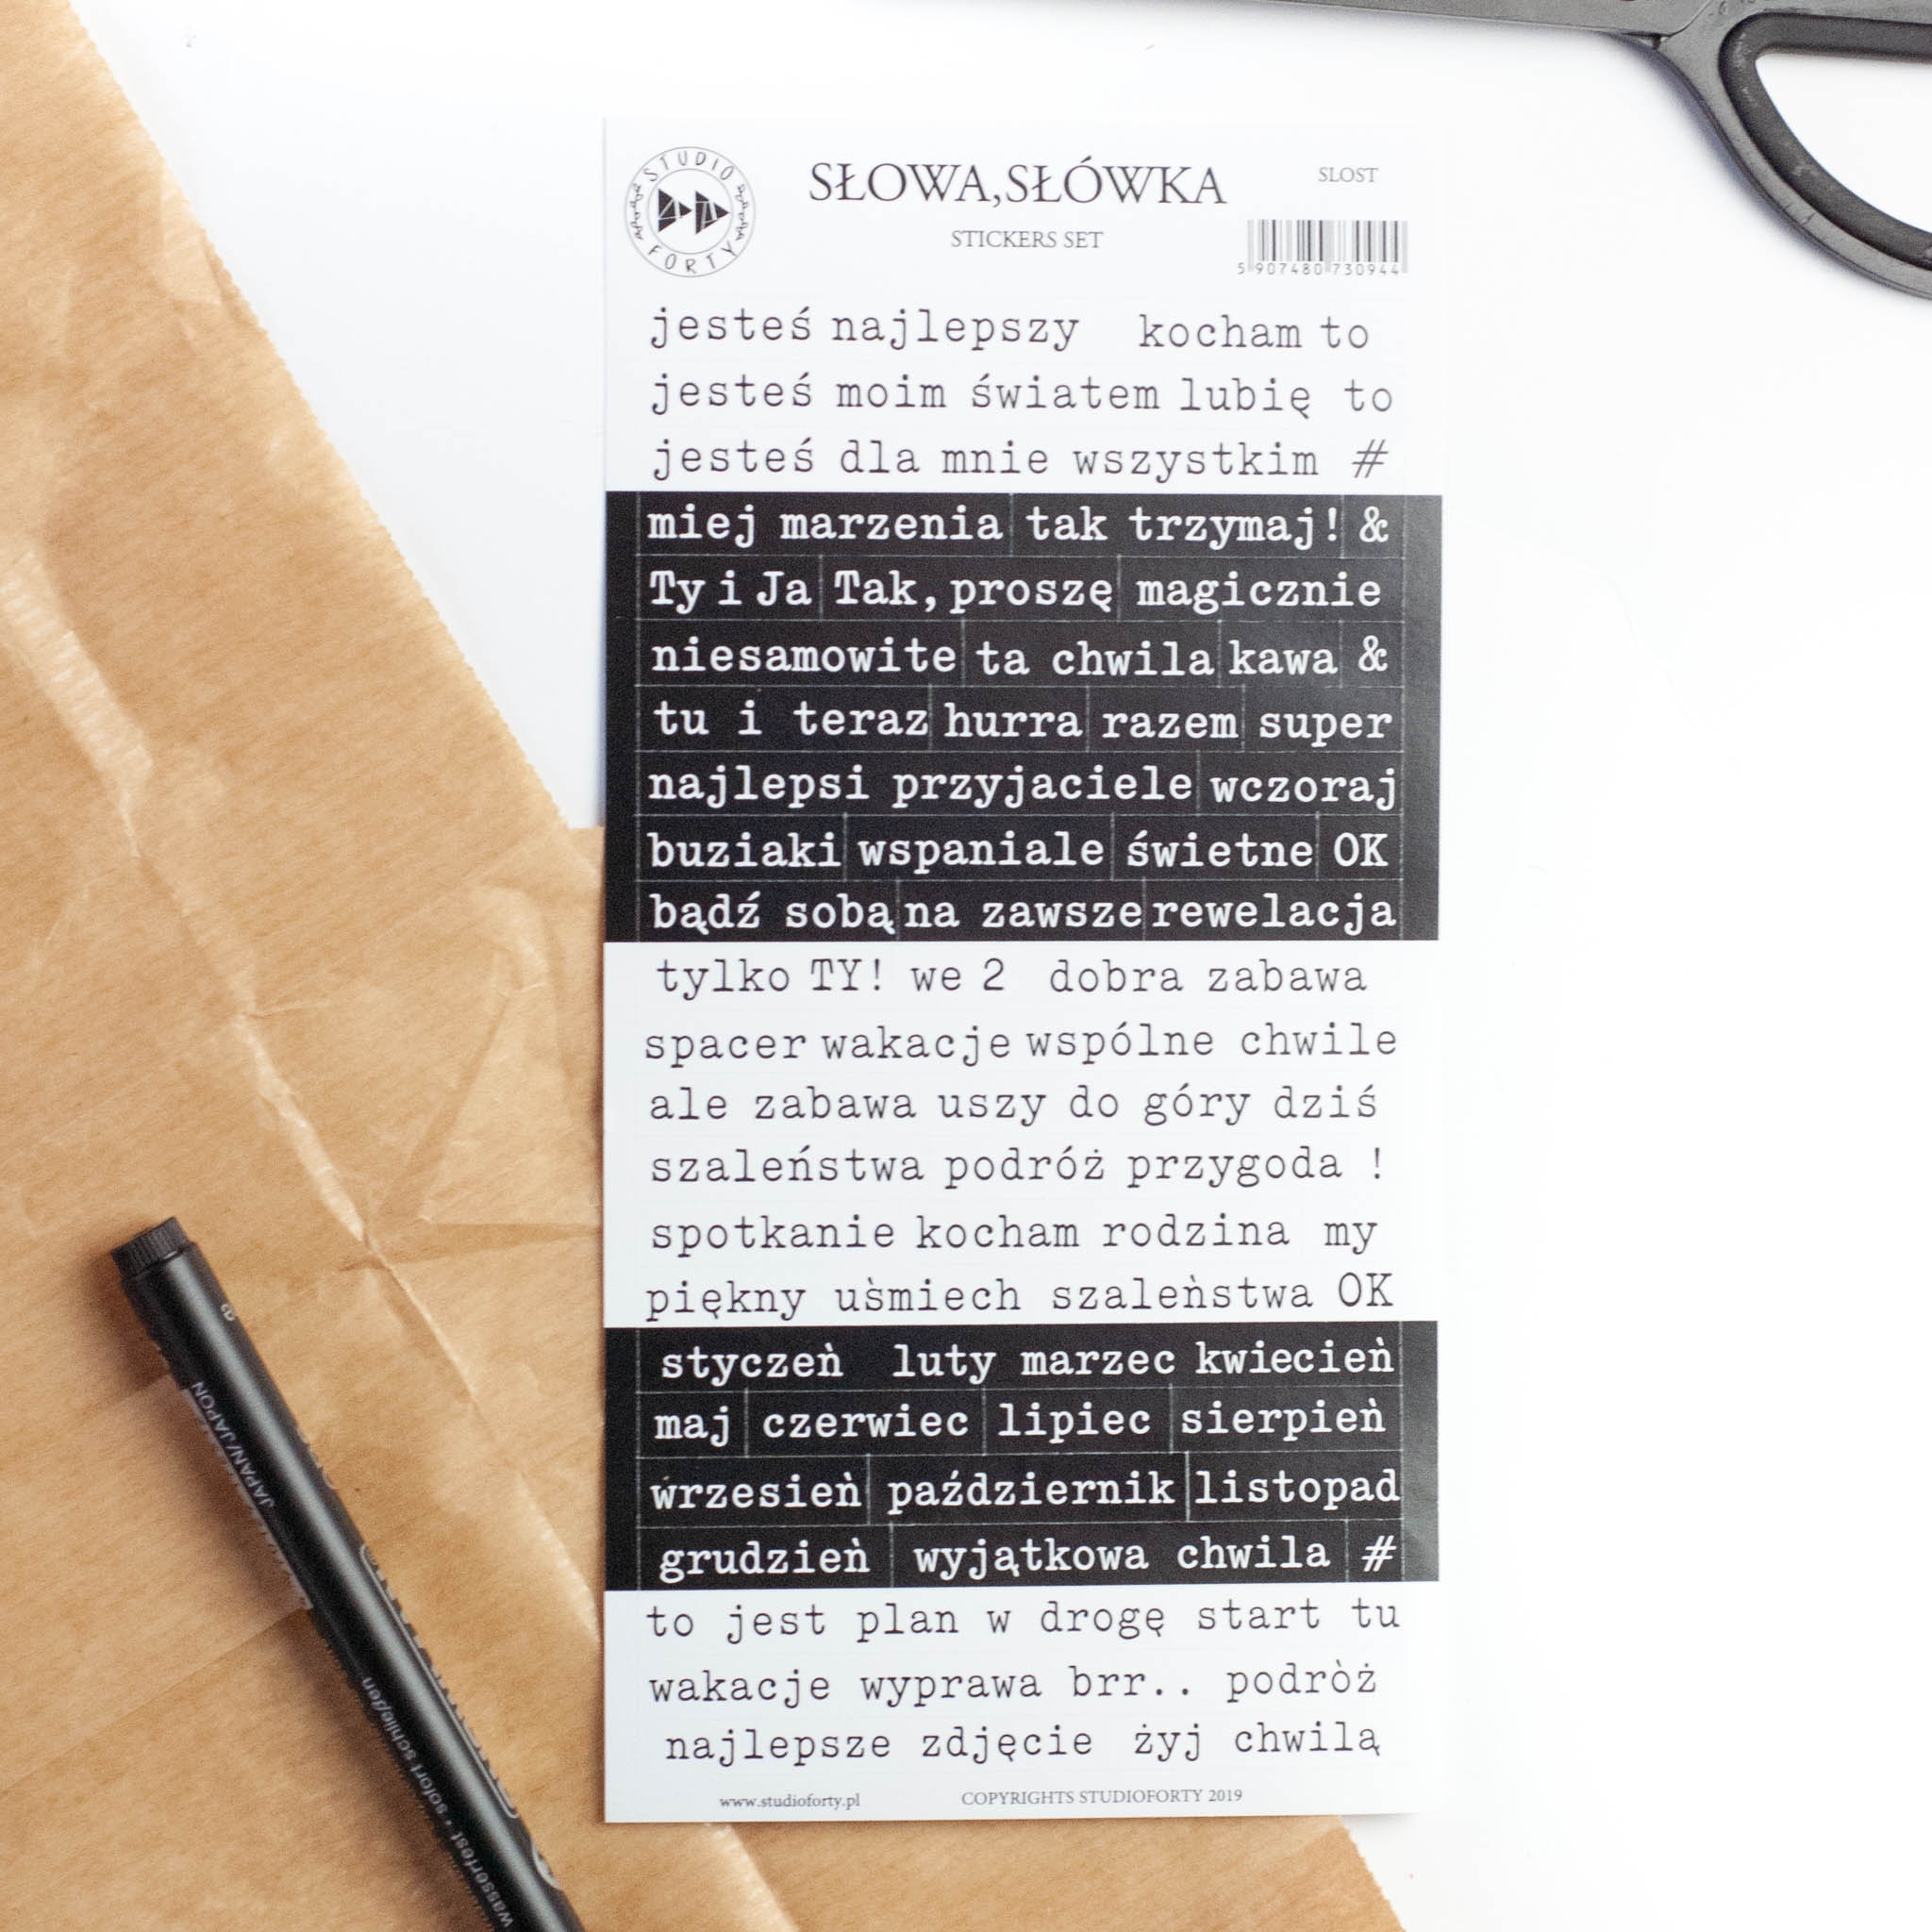 STUDIO
FORTY
SŁOWA,SŁÓWKA
SLOST
STICKERS SET
5 907480 730944
jesteś najlepszy kocham to
jesteś moim światem lubię to
jesteś dla mnie wszystkim #
miej marzenia tak trzymaj! &
Ty i Ja Tak, proszę magicznie
niesamowite ta chwila kawa &
tu i teraz hurra razem super
najlepsi przyjaciele wczoraj
buziaki wspaniale świetne OK
bądź sobą na zawsze rewelacja
tylko TY! we 2 dobra zabawa
spacer wakacje wspólne chwile
ale zabawa uszy do góry dziś
szaleństwa podróż przygoda !
spotkanie kocham rodzina my
piękny uśmiech szaleǹstwa OK
styczeǹ luty marzec kwiecieǹ
maj czerwiec lipiec sierpieǹ
wrzesieǹ październik listopad
grudzieǹ wyjątkowa chwila #
to jest plan w drogę start tu
wakacje wyprawa brr.. podròż
najlepsze zdjęcie żyj chwilą
www.studioforty.pl COPYRIGHTS STUDIOFORTY 2019
JAPAN/JAPON
wasserfest • sofort schließen